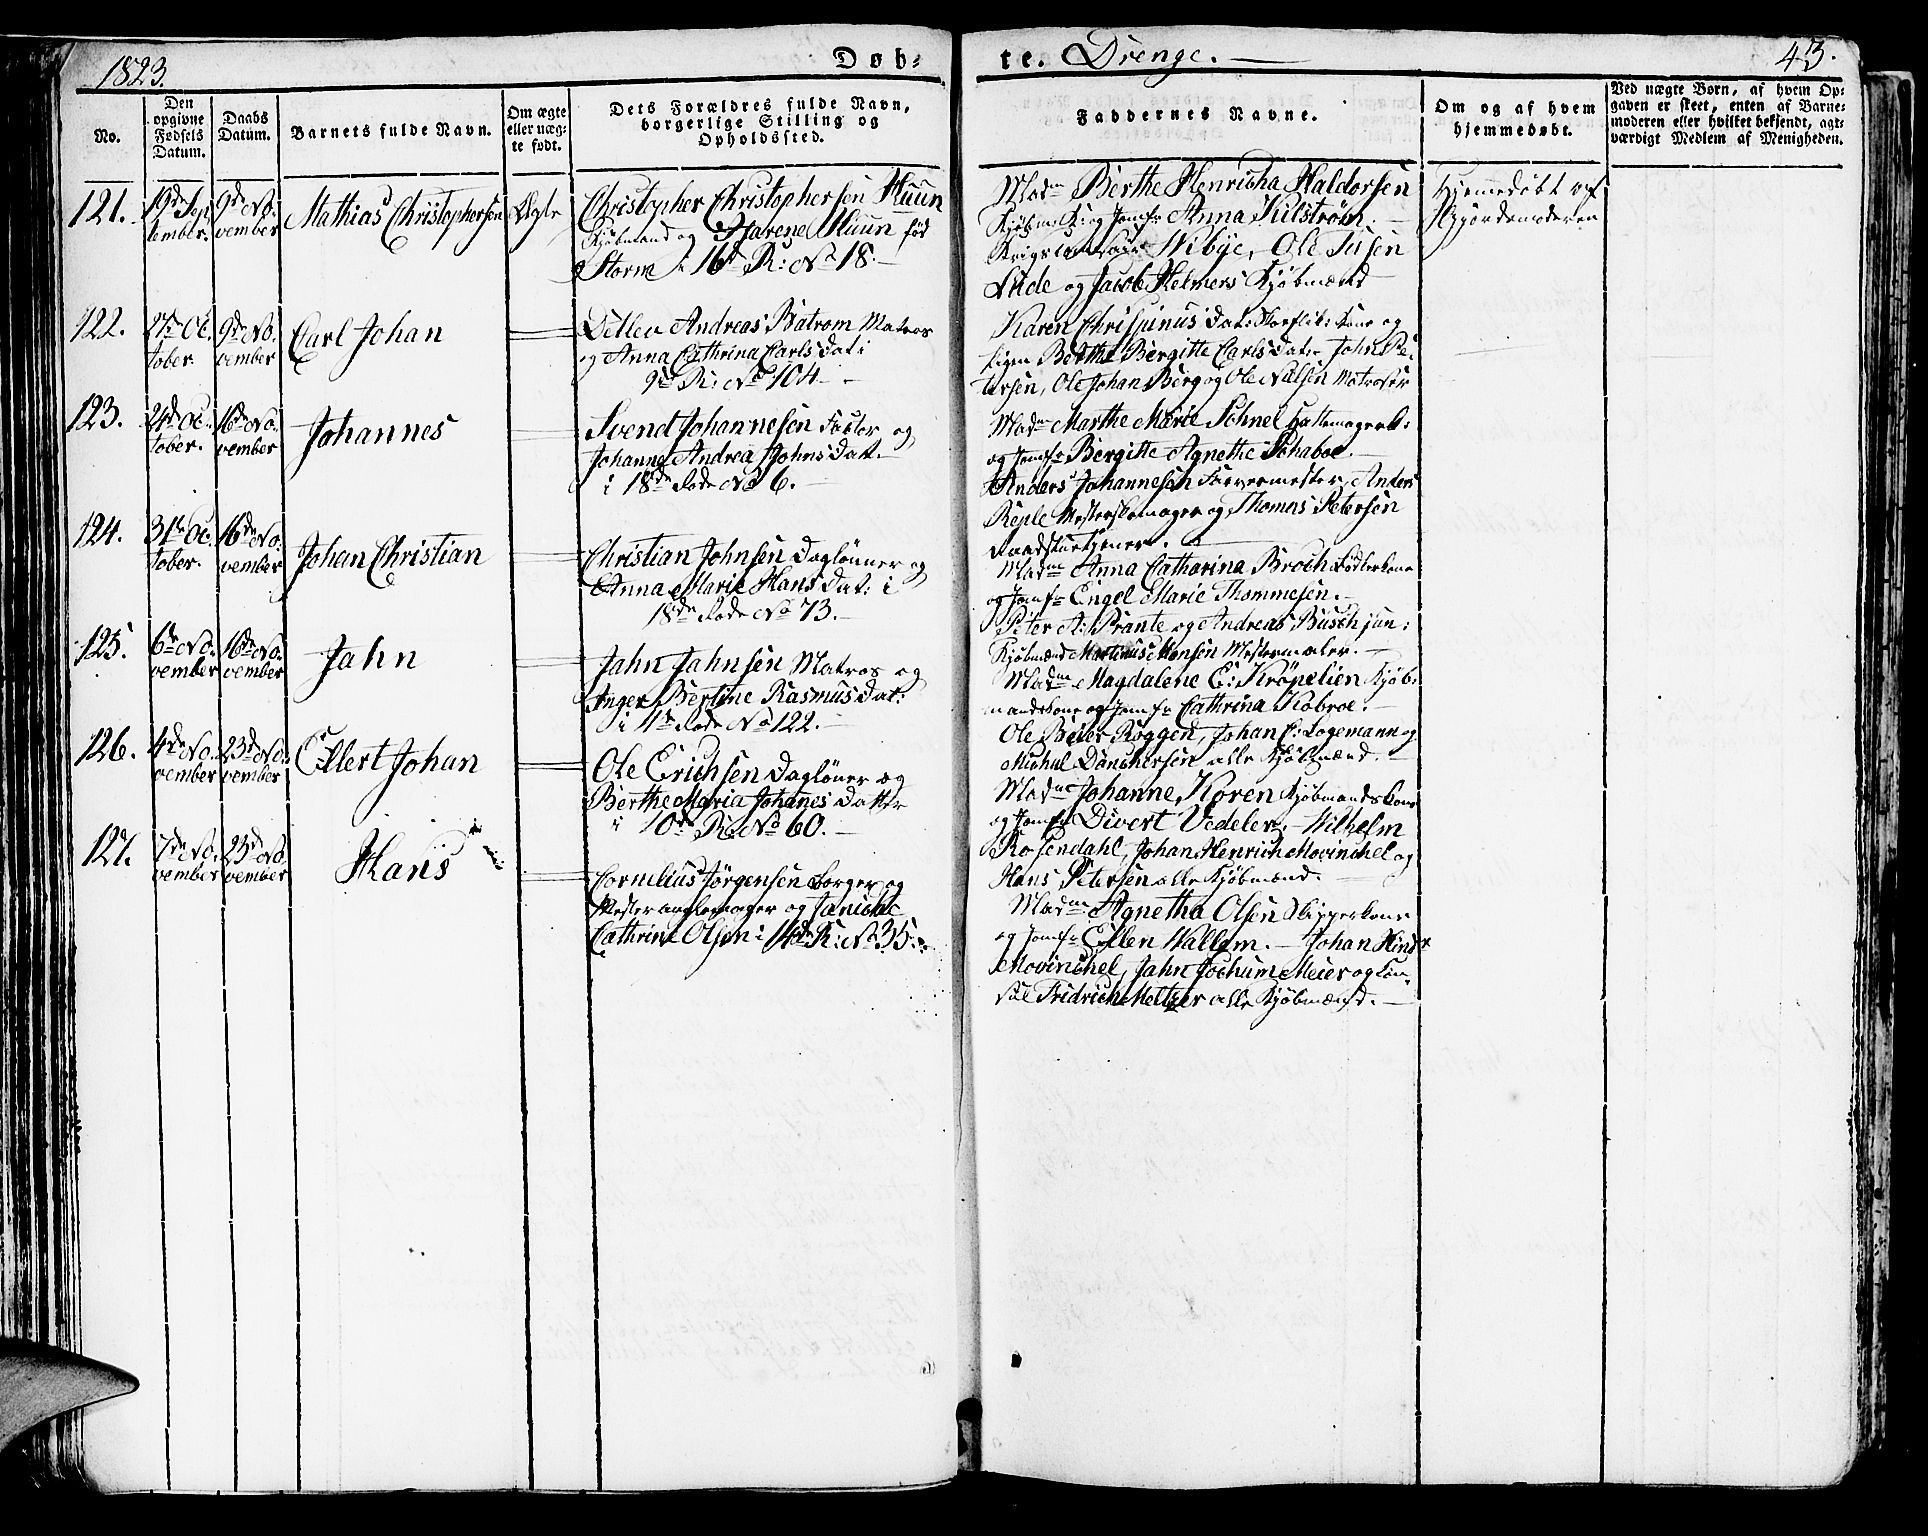 1823.
Døb-
te. Drenge.
43.
No.
Den opgivne Fødsels Datum.
Daabs Datum.
Barnets fulde Navn.
Om ægte eller uægte født.
Dets Forældres fulde Navn, borgerlige Stilling og Opholdssted.
Faddernes Navne.
Om og af hvem hjemmedøbt.
Ved uægte Børn, af hvem Opgaven er skeet, enten af Barnemoderen eller hvilket bekjendt, agtværdigt Medlem af Menigheden.
121.
19de Sep
tember.
9de No
vember
Mathias Christophersen
Ægte
Christopher Christophersen Huun
Kjøbmand og Marene Huun fød
Storm i 16de R: No 18.
Madm Berthe Henricha Haldorsen
Kjøbm:K: og Jomfr Anna Kilström.
Wibye, Ole
og Jacob Helmers Kjøbmænd
Hjemmedøbt af
Gjordemoderen
122.
27de Oc
tober
9de No
vember
Carl Johan
Andreas Batrom Matros
og Anna Cathrina Carls Dat:
9de R: No 104
Karen Chrispinus Dat: Kone og
Pigen Berthe Bergitte Carls Dat: John Pe-
tersen, Ole Johan Berg og Ole Nilsen Matroser
123.
24de Oc
tober.
16de No
vember
Johannes
Svend Johannesen og
Johanne Andrea Johns Dat.
i 18de Rode No 6.
Madm Marthe Marie Sohnel Hattemagerk:
og Jomfr Bergitte Agnethe Schaboe.
Anders Johannesen Farvermester, Anders
Reple Mesterskomager og Thomas Petersen
Raadstuetjener.
124.
31te Oc
tober.
16de No
vember
Johan Christian
Christian Johnsen Daglönner og
Anna Marie Hans Dat: i
18de Rode No 73.
Madme Anna Catharina Broch
og Jomfr Engel Marie Thommesen.
Peter A: Prante og Andreas Busch jun:
Kjøbmænd Martinus Monsen Mestermaler.
125.
6te No
vember
16de No
vember
Jahn
Jahn Jahnsen Matros og
Inger Bertine Rasmus Dat:
i 4de Rode No 122.
Madme Magdalene E: Kröpelien Kjøb-
mandskone og Jomfr Cathrina Kobroe.
Ole Beier Roggen, Johan C: Logemann og
Michal Danchersen alle Kjøbmænd.
126.
4de No
vember
23de No
vember
Ellert Johan
Ole Erichsen Daglöner og
Berthe Maria Johanes Datter
i 10de R: No 60.
Madme Johanne Koren Kjøbmandskone
og Jomfr Divert Vedeler. Wilhelm
Rosendahl, Johan Henrich Movinckel og
Hans Petersen alle Kjøbmænd.
127.
7de No
vember
23de No
vember
Hans
Cornelius Jørgensen Borger og
Mester og Janiche
Cathrine Olsen i 14de R: No 35.
Madme Agnetha Olsen Skipperkone
og Jomfr Ellen Wallem. Johan Hind:
Movinchel, Jahn Jochum Meier og Con-
sul Fridrich Meltzer alle Kjøbmænd.